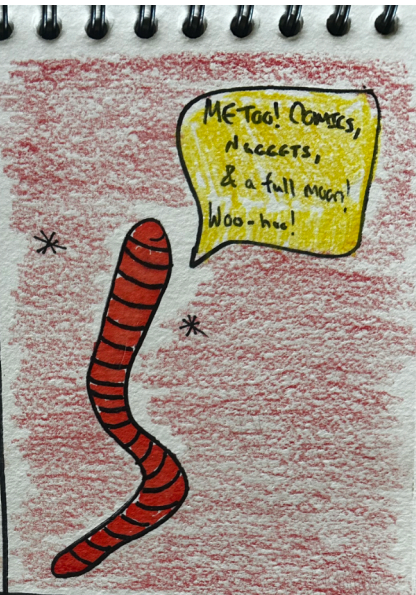 METOO! COMICS,
NUGGETS,
& a full moon!
Woo-hoo!